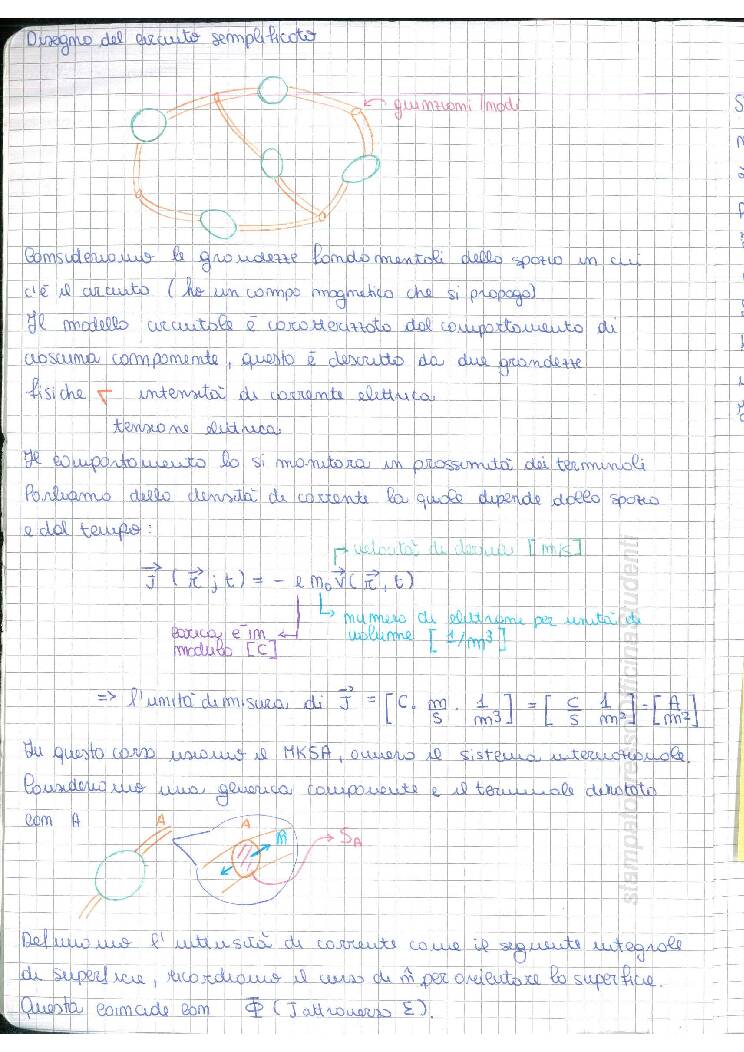 Disegno del circuito semplificato
giunzioni / nodi
Consideriamo le grandezze fondamentali dello spazio in cui
c'è il circuito (ho un campo magnetico che si propaga)
Il modello circuitale è caratterizzato dal comportamento di
ciascuna componente, questo è descritto da due grandezze
fisiche intensità di corrente elettrica
tensione elettrica
Il comportamento lo si monitora in prossimità dei terminali
Parliamo della densità di corrente la quale dipende dallo spazio
e dal tempo:
velocità di deriva [m/s]
J (r ; t) = - e n₀ v (r, t)
numero di elettroni per unità di
volume [1/m³]
carica e⁻ in
modulo [C]
=> l'unità di misura di J = [C · m/s · 1/m³] = [C/s 1/m²] = [A/m²]
In questo corso usiamo il MKSA, ovvero il sistema internazionale.
Consideriamo una generica componente e il terminale denotato
con A
A
A
n̂
S_A
Definiamo l'intensità di corrente come il seguente integrale
di superficie, ricordiamo il verso di n̂ per orientare la superficie.
Questa coincide con Φ (J attraverso Σ).
stampato presso Officina Studenti